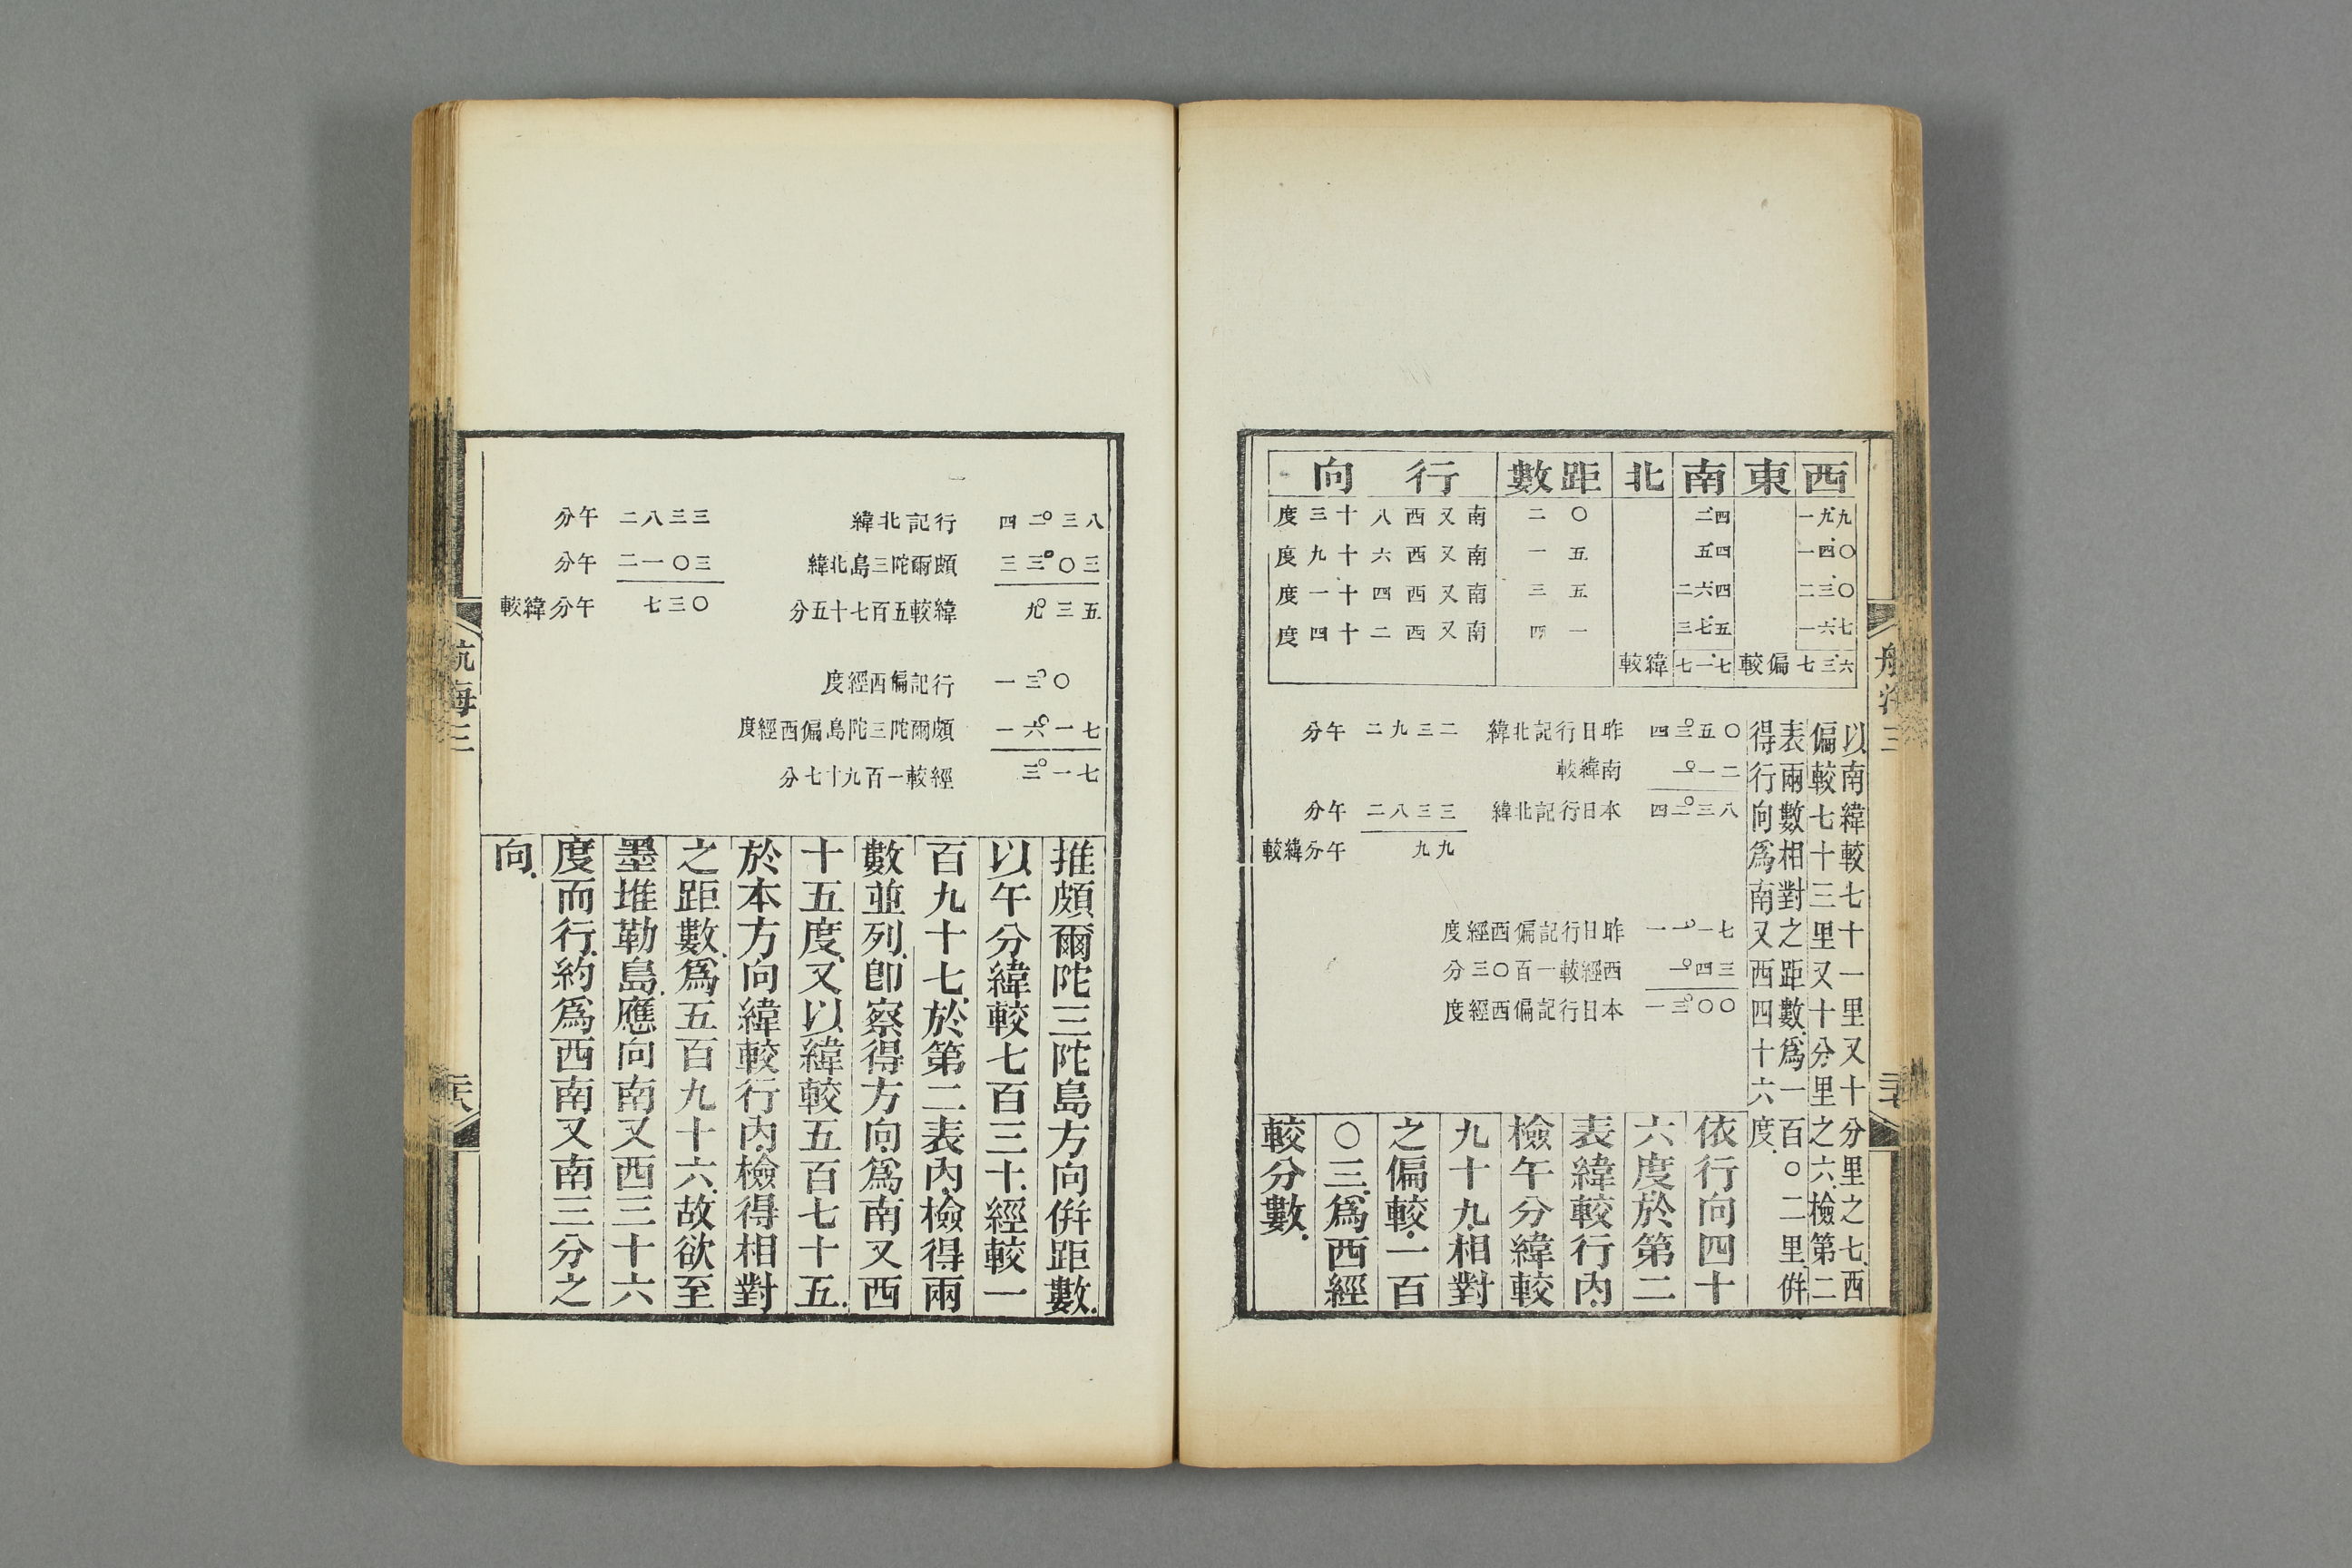 西 東 南 北 距數 行向
一九九 二四 二〇 南又西八十三度
一四〇 五四 一五 南又西六十九度
二三〇 二六四 三五 南又西四十一度
一六七 三七五 四一 南又西二十四度
七三六 偏較 七一七 緯較
以南緯較七十一里又十分里之七西
偏較七十三里又十分里之六檢第二
表兩數相對之距數爲一百〇二里併
得行向爲南又西四十六度
四三°五〇 昨日行記北緯 二九三二 午分
一°一二 南緯較
四二°三八 本日行記北緯 二八三三 午分
九九 午分緯較
一一°一七 昨日行記偏西經度
一°四三 西經較一百〇三分
一三°〇〇 本日行記偏西經度
依行向四十
六度於第二
表緯較行內
檢午分緯較
九十九相對
之偏較一百
〇三爲西經
較分數
四二°三八 行記北緯 二八三三 午分
三三°〇三 頗爾陀三島北緯 二一〇三 午分
九°三五 緯較五百七十五分 七三〇 午分緯較
一三°〇 行記偏西經度
一六°一七 頗爾陀三陀島偏西經度
三°一七 經較一百九十七分
推頗爾陀三陀島方向併距數
以午分緯較七百三十經較一
百九十七於第二表內檢得兩
數並列卽察得方向爲南又西
十五度又以緯較五百七十五
於本方向緯較行內檢得相對
之距數爲五百九十六故欲至
墨堆勒島應向南又西三十六
度而行約爲西南又南三分之
向
航海三